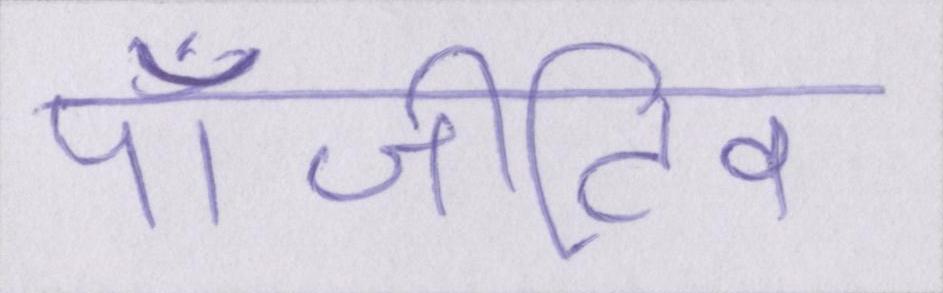 पाँजीटिव